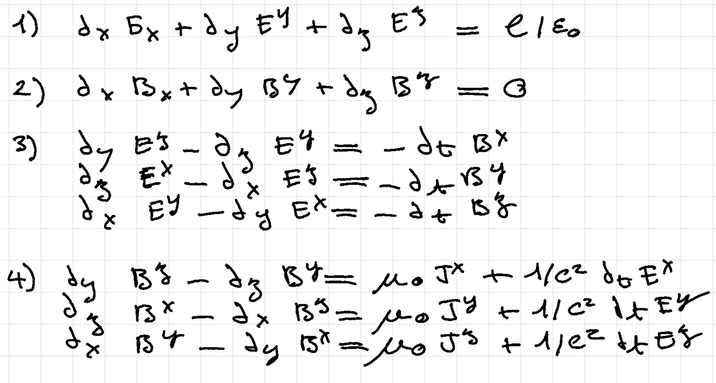 1) ∂x Ex + ∂y E^y + ∂z E^z = ρ/ε₀
2) ∂x Bx + ∂y B^y + ∂z B^z = 0
3) ∂y E^z − ∂z E^y = − ∂t B^x
∂z E^x − ∂x E^z = − ∂t B^y
∂x E^y − ∂y E^x = − ∂t B^z
4) ∂y B^z − ∂z B^y = μ₀ J^x + 1/c² ∂t E^x
∂z B^x − ∂x B^z = μ₀ J^y + 1/c² ∂t E^y
∂x B^y − ∂y B^x = μ₀ J^z + 1/c² ∂t E^z